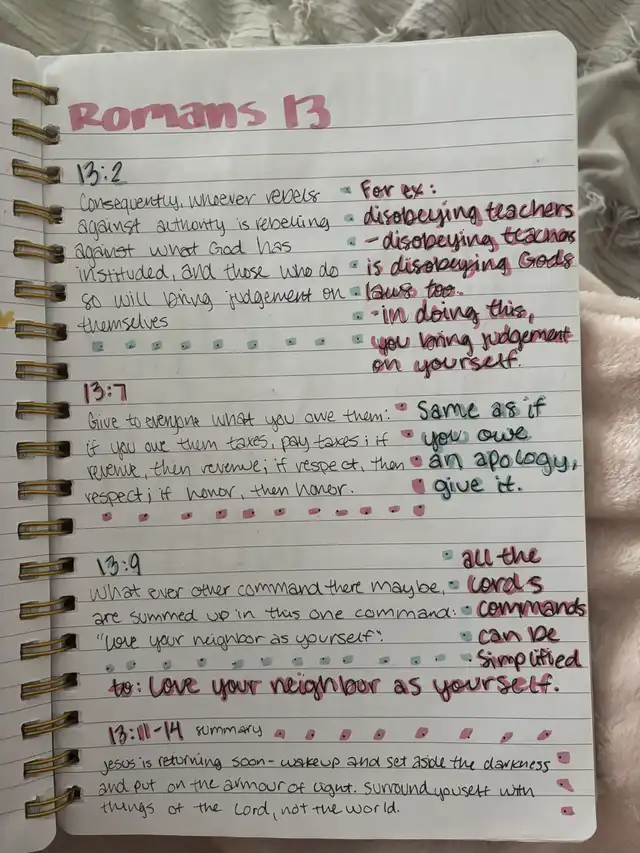 Romans 13
13:2
Consequently, whoever rebels
against authority is rebelling
against what God has
instituded, and those who do
so will bring judgement on
themselves
For ex:
disobeying teachers
- disobeying teachers
is disobeying Gods
laws too.
- in doing this,
you bring judgement
on yourself.
13:7
Give to everyone what you owe them:
if you owe them taxes, pay taxes; if
revenue, then revenue; if respect, then
respect; if honor, then honor.
Same as if
you owe
an apology,
give it.
13:9
What ever other command there maybe,
are summed up in this one command:
"Love your neighbor as yourself".
all the
Lords
commands
can be
simplified
to: Love your neighbor as yourself.
13:11-14 summary
Jesus is returning soon - wakeup and set aside the darkness
and put on the armour of light. Surround youself with
things of the Lord, not the world.